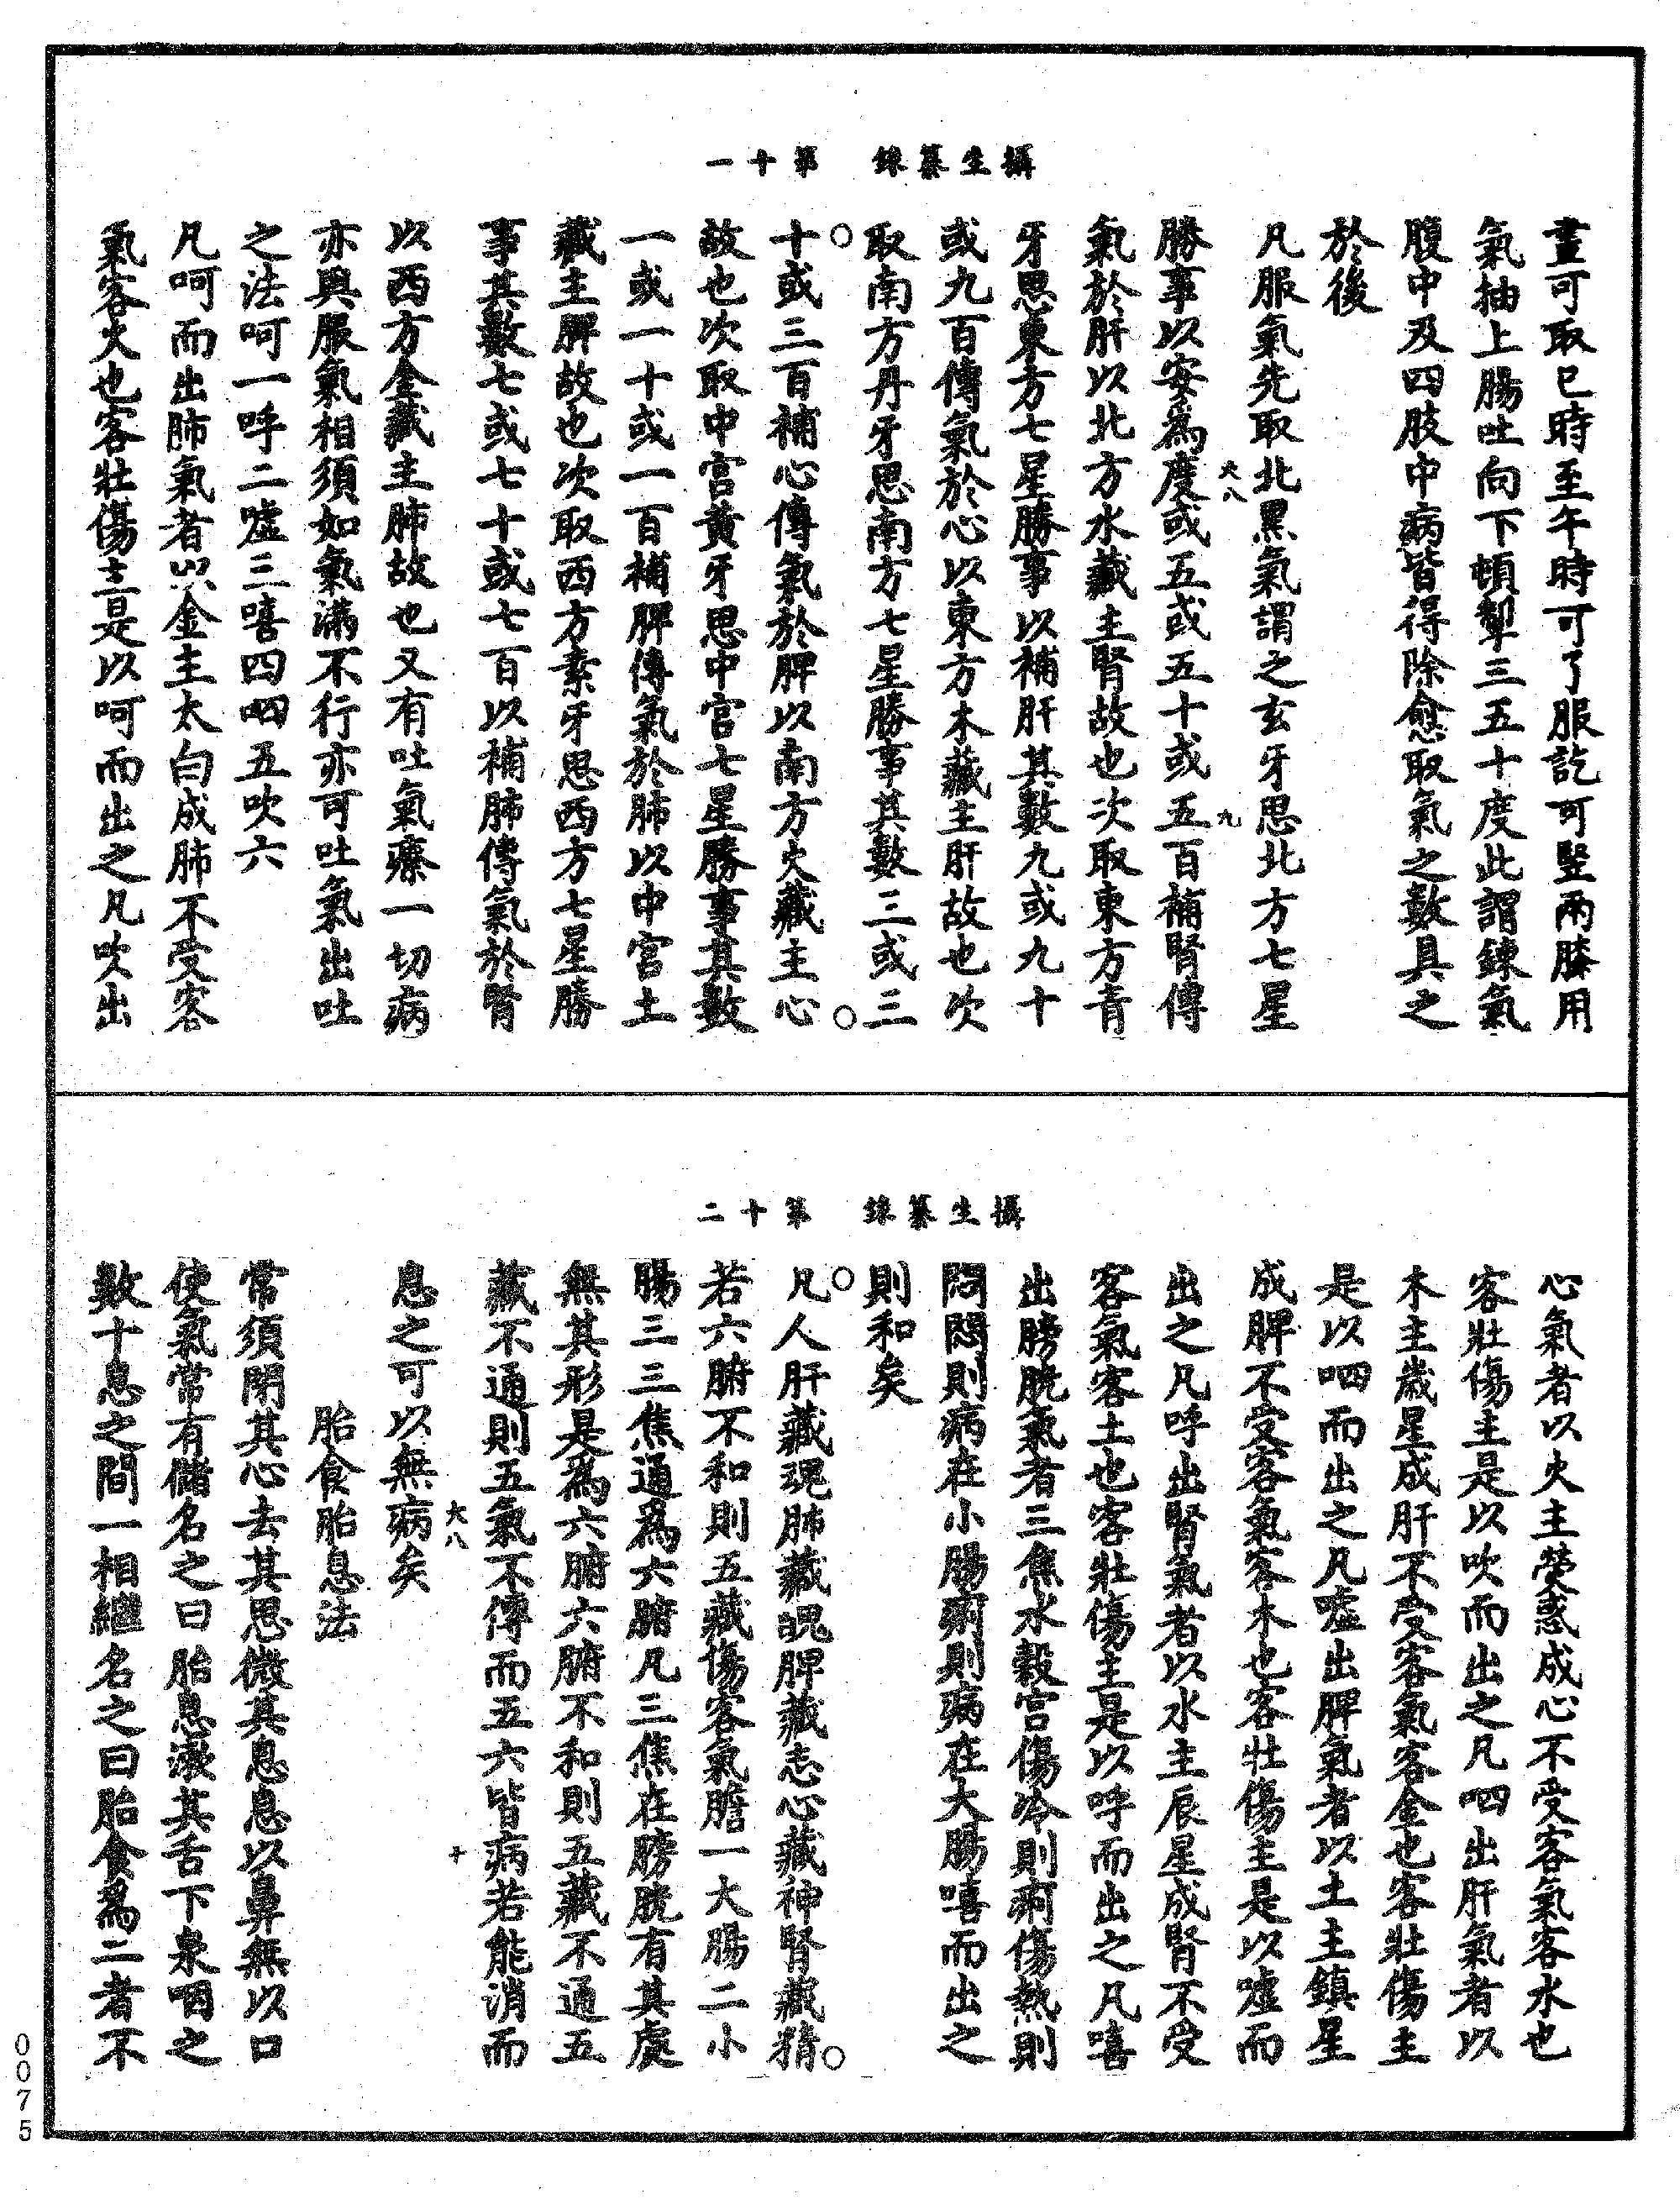 攝生纂錄　第十一
晝可取巳時至午時可了服訖可豎兩膝用
氣抽上腸吐向下頓掣三五十度此謂鍊氣
腹中及四肢中病皆得除愈取氣之數具之
於後
凡服氣先取北黑氣謂之玄牙思北方七星
大八　九
勝事以安為度或五或五十或五百補腎傳
氣於肝以北方水藏主腎故也次取東方青
牙思東方七星勝事以補肝其數九或九十
或九百傳氣於心以東方木藏主肝故也次
取南方丹牙思南方七星勝事其數三或三
十或三百補心傳氣於脾以南方火藏主心
故也次取中宮黃牙思中宮七星勝事其數
一或一十或一百補脾傳氣於肺以中宮土
藏主脾故也次取西方素牙思西方七星勝
事其數七或七十或七百以補肺傳氣於腎
以西方金藏主肺故也又有吐氣療一切病
亦與服氣相須如氣滿不行亦可吐氣出吐
之法呵一呼二噓三嘻四呬五吹六
凡呵而出肺氣者以金主太白成肺不受客
氣客火也客壯傷主是以呵而出之凡吹出
攝生纂錄　第十二
心氣者以火主熒惑成心不受客氣客水也
客壯傷主是以吹而出之凡呬出肝氣者以
木主歲星成肝不受客氣客金也客壯傷主
是以呬而出之凡噓出脾氣者以土主鎮星
成脾不受客氣客木也客壯傷主是以噓而
出之凡呼出腎氣者以水主辰星成腎不受
客氣客土也客壯傷主是以呼而出之凡嘻
出膀胱氣者三焦水穀宮傷冷則痾傷熱則
悶悶則病在小腸痢則病在大腸嘻而出之
則和矣
凡人肝藏魂肺藏魄脾藏志心藏神腎藏精
若六腑不和則五藏傷客氣膽一大腸二小
腸三三焦通為六腑凡三焦在膀胱有其處
無其形是為六腑六腑不和則五藏不通五
藏不通則五氣不傳而五六皆病若能消而
大八　十
息之可以無病矣
胎食胎息法
常須閉其心去其思微其息息以鼻無以口
使氣常有儲名之曰胎息漱其舌下泉咽之
數十息之間一相繼名之曰胎食為二者不
0075